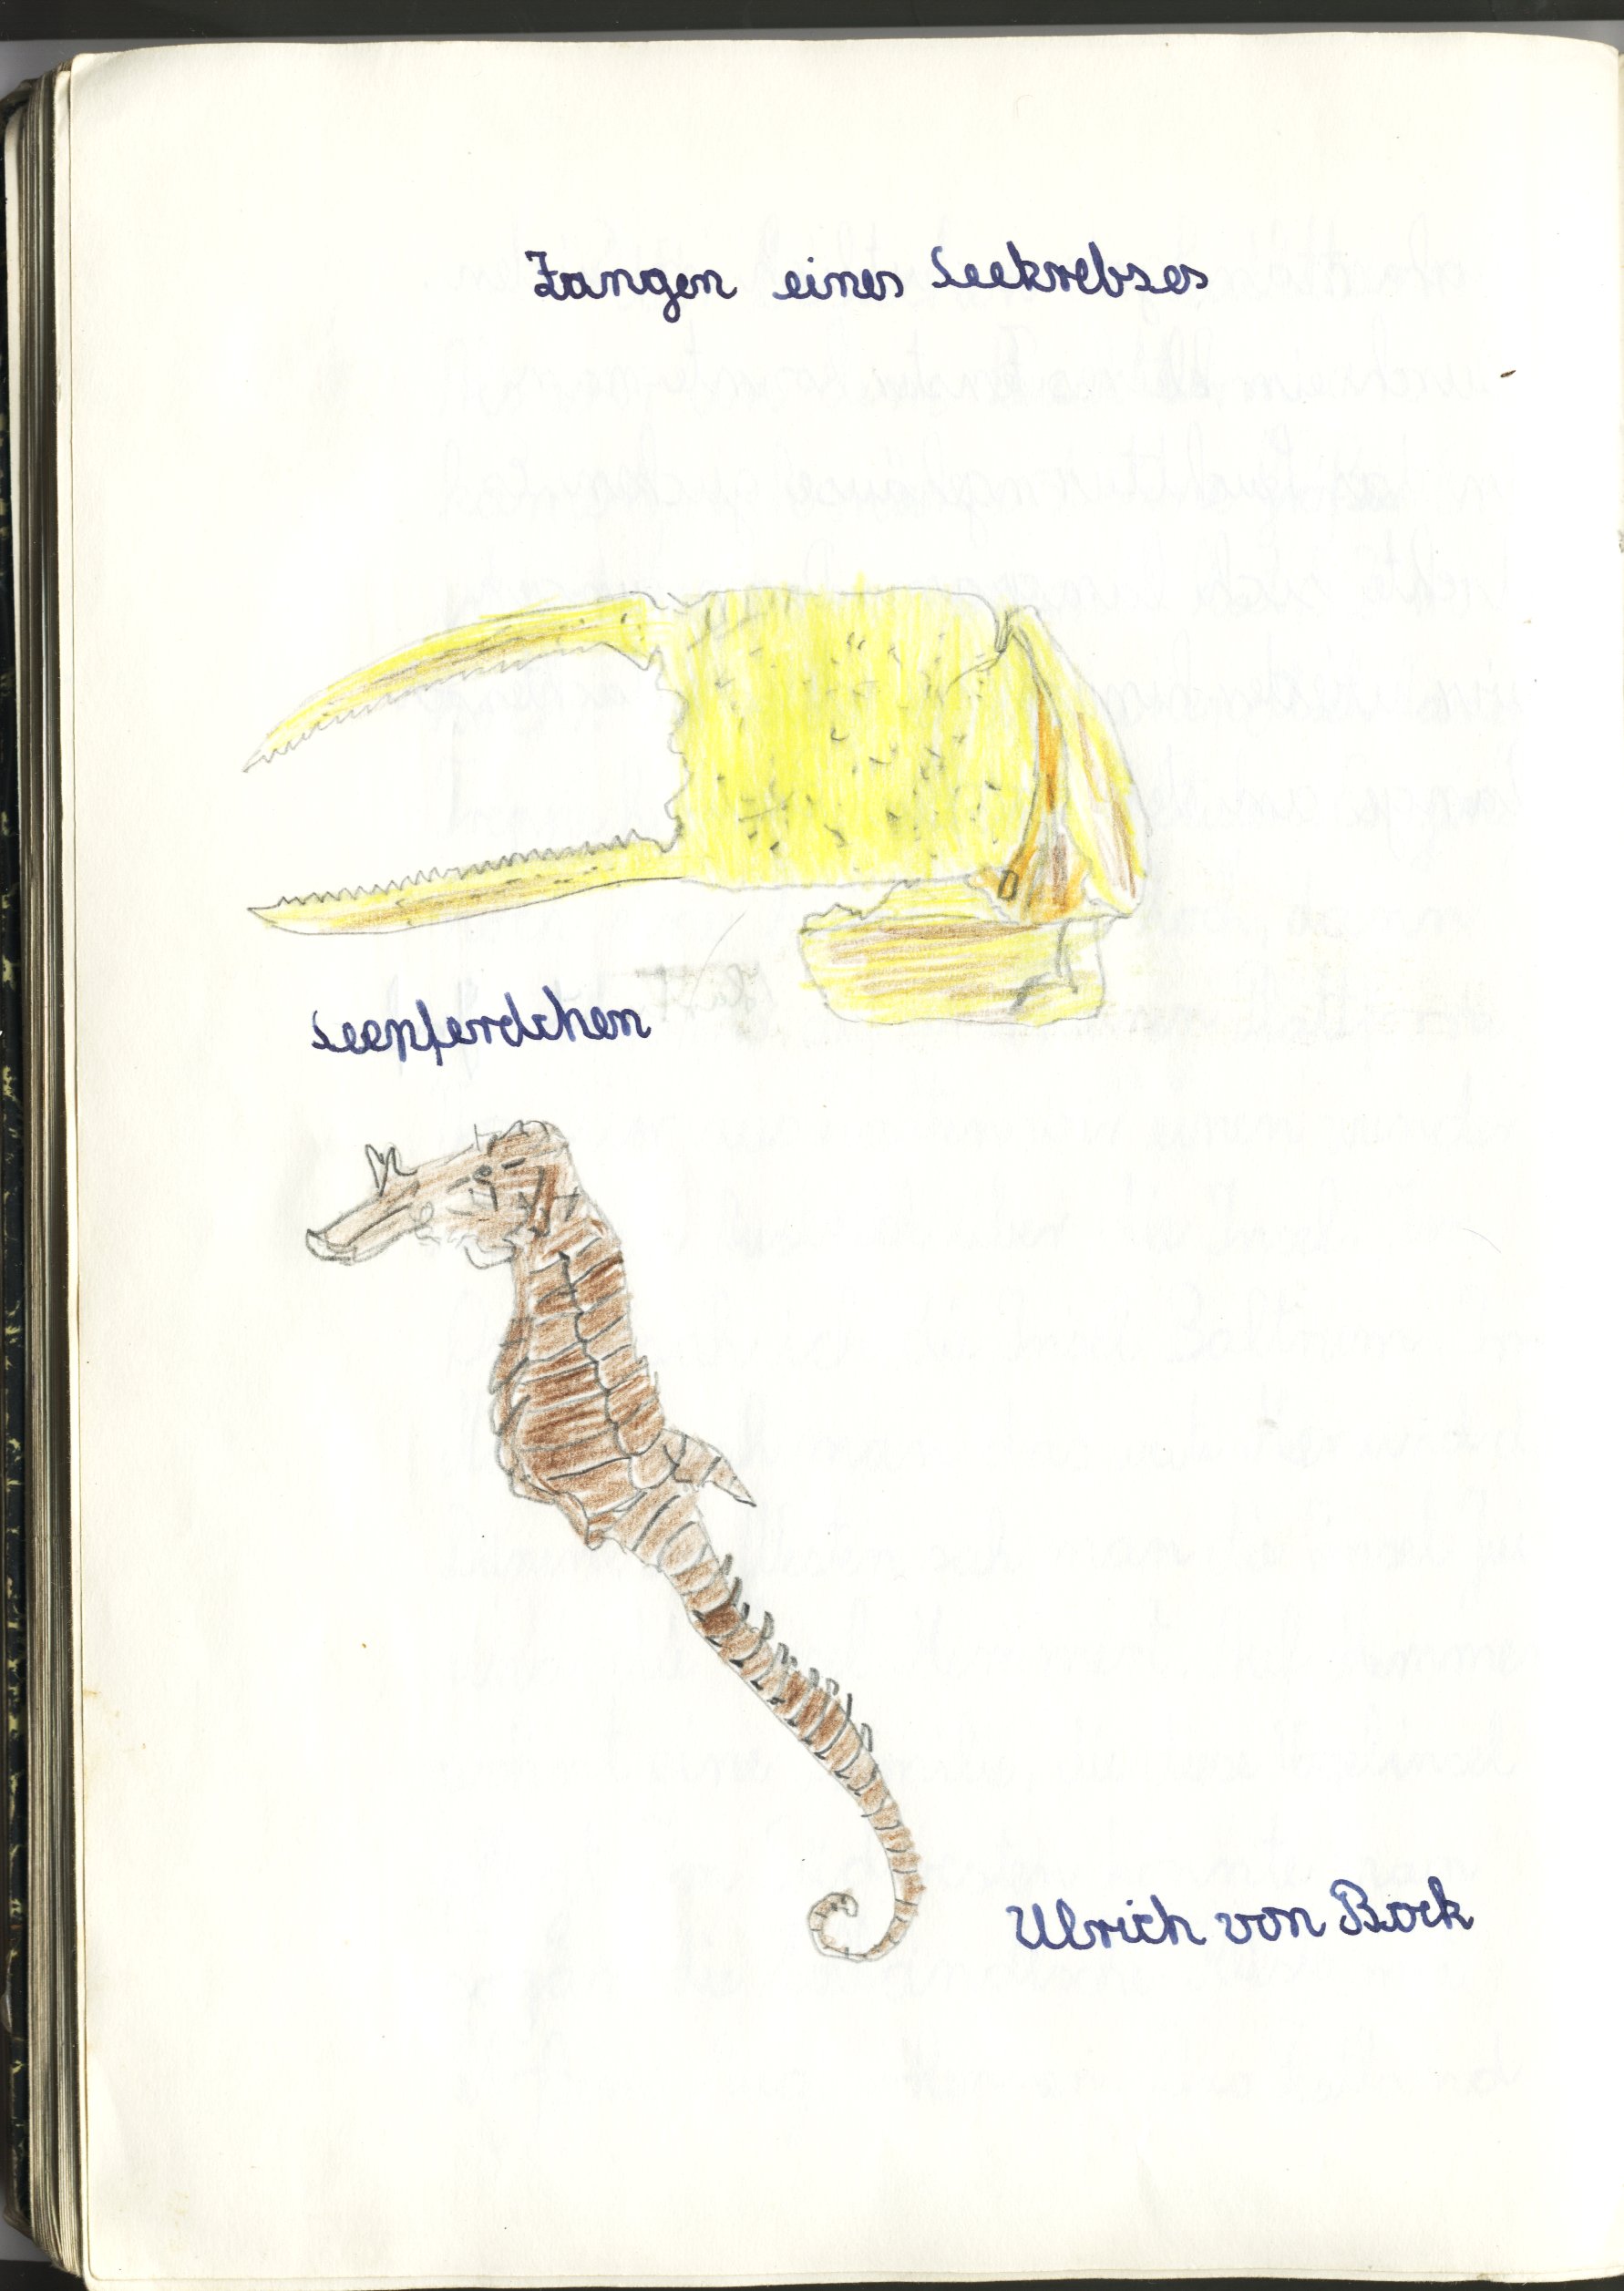 Zangen eines Seekrebses
Seepferdchen
Ulrich von Bock